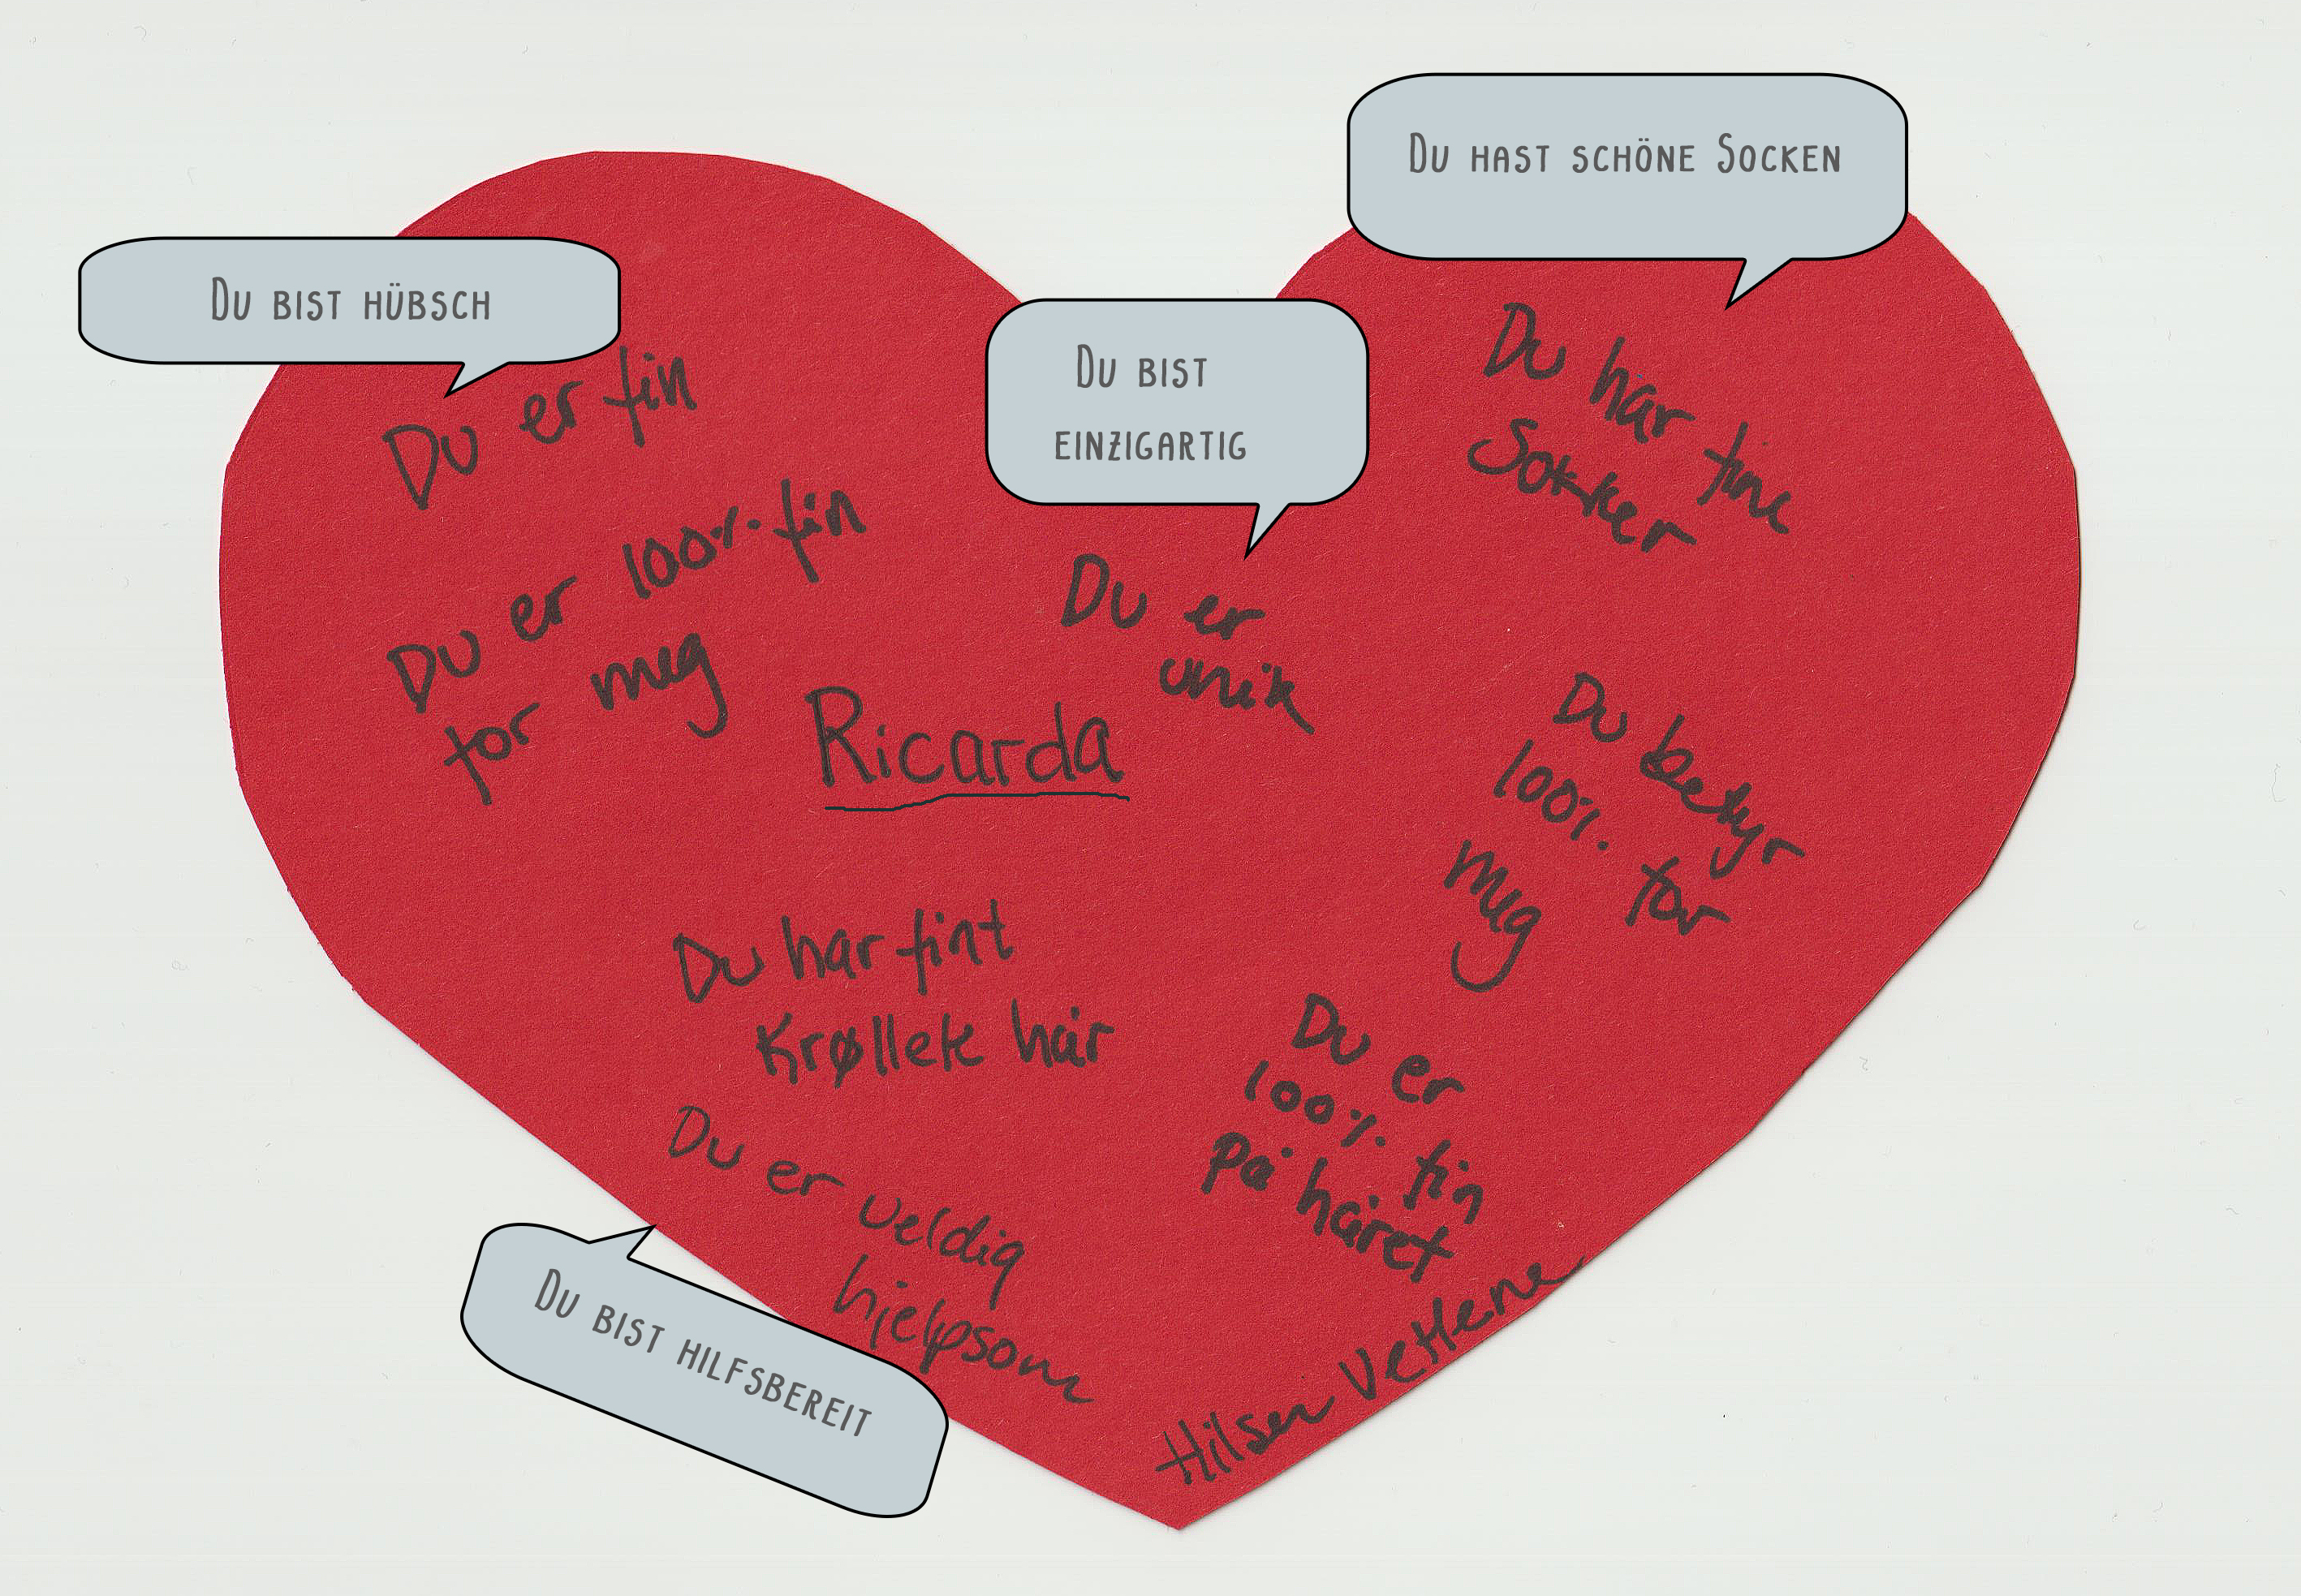 Du hast schöne Socken
Du bist hübsch
Du bist
einzigartig
Du er fin
Du har fine
Sokker
Du er 100% fin
for meg
Du er
unik
Ricarda
Du betyr
100% for
meg
Du har fint
Krøllete hår
Du er
100% fin
på håret
Du er veldig
hjelpsom
Du bist hilfsbereit
Hilsen Vetlene